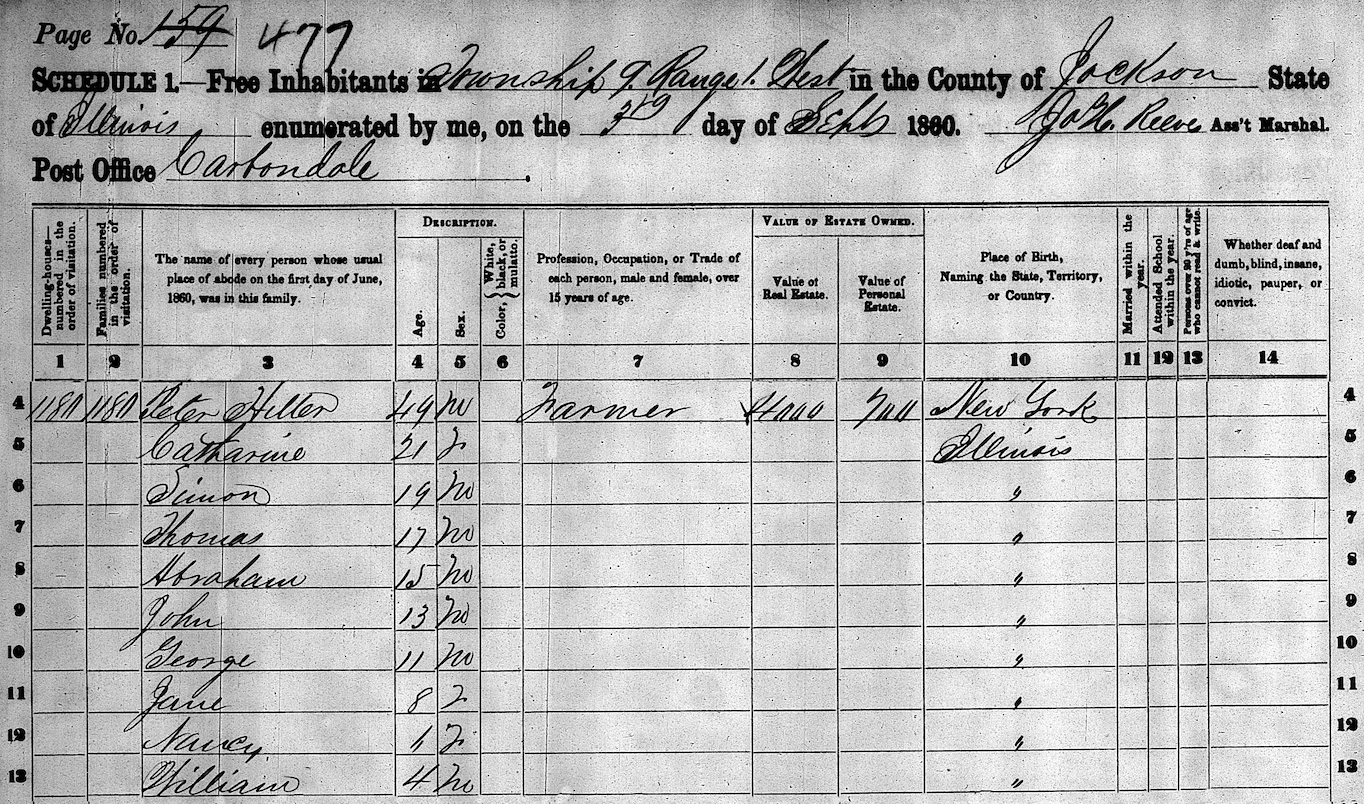 Page No. 159 477
SCHEDULE 1.—Free Inhabitants in Township 9. Range 1. West in the County of Jackson State
of Illinois enumerated by me, on the 3rd day of Sept 1860. Jo H. Reeve Ass't Marshal.
Post Office Carbondale.
Dwelling-houses—numbered in the order of visitation.
Families numbered in the order of visitation.
The name of every person whose usual place of abode on the first day of June, 1860, was in this family.
DESCRIPTION.
Age.
Sex.
Color, { White, black, or mulatto.
Profession, Occupation, or Trade of each person, male and female, over 15 years of age.
VALUE OF ESTATE OWNED.
Value of Real Estate.
Value of Personal Estate.
Place of Birth, Naming the State, Territory, or Country.
Married within the year.
Attended School within the year.
Persons over 20 y'rs of age who cannot read & write.
Whether deaf and dumb, blind, insane, idiotic, pauper, or convict.
1 2 3 4 5 6 7 8 9 10 11 12 13 14
4 1180 1180 Peter Hiller 49 m Farmer 4000 700 New York 4
5 Catharine 21 f Illinois 5
6 Simon 19 m " 6
7 Thomas 17 m " 7
8 Abraham 15 m " 8
9 John 13 m " 9
10 George 11 m " 10
11 Jane 8 f " 11
12 Nancy f " 12
13 William 4 m " 13